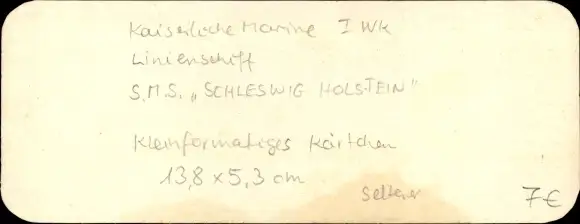 Kaiserliche Marine I WK
Linienschiff
S.M.S. „SCHLESWIG HOLSTEIN"
Kleinformatiges Kärtchen
13,8 x 5,3 cm
seltener
7€